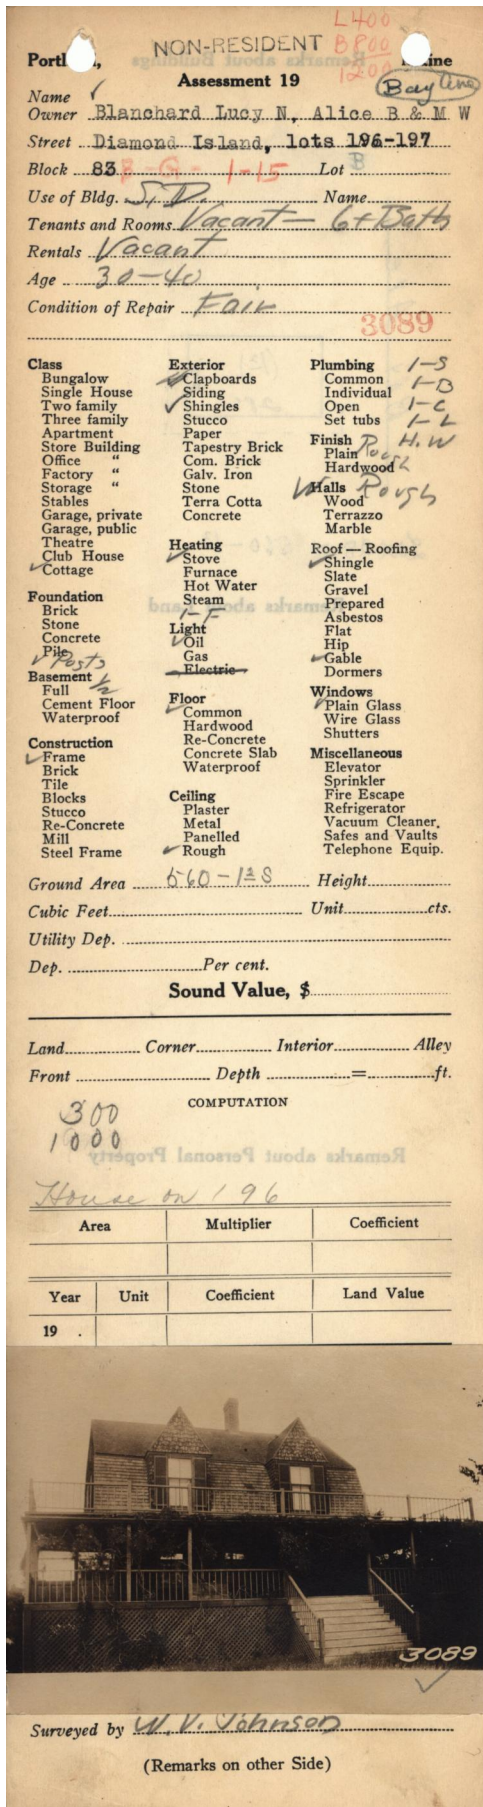 NON-RESIDENT
L400
B800
1200
Portl d, Maine
Assessment 19
Bay View
Name
Owner Blanchard Lucy N, Alice B & M W
Street Diamond Island, lots 196-197
Block 83 B-G-1-15 Lot B
Use of Bldg. S.D. Name
Tenants and Rooms Vacant — 6+Bath
Rentals Vacant
Age 30-40
Condition of Repair Fair
3089
Class
Bungalow
Single House
Two family
Three family
Apartment
Store Building
Office "
Factory "
Storage "
Stables
Garage, private
Garage, public
Theatre
Club House
Cottage
Foundation
Brick
Stone
Concrete
Pile Posts
Basement 1/2
Full
Cement Floor
Waterproof
Construction
Frame
Brick
Tile
Blocks
Stucco
Re-Concrete
Mill
Steel Frame
Exterior
Clapboards
Siding
Shingles
Stucco
Paper
Tapestry Brick
Com. Brick
Galv. Iron
Stone
Terra Cotta
Concrete
Heating
Stove
Furnace
Hot Water
Steam
1-F
Light
Oil
Gas
Electric
Floor
Common
Hardwood
Re-Concrete
Concrete Slab
Waterproof
Ceiling
Plaster
Metal
Panelled
Rough
Plumbing 1-S
Common 1-B
Individual 1-C
Open 1-L
Set tubs H.W
Finish Rough
Plain
Hardwood
Walls Rough
Wood
Terrazzo
Marble
Roof — Roofing
Shingle
Slate
Gravel
Prepared
Asbestos
Flat
Hip
Gable
Dormers
Windows
Plain Glass
Wire Glass
Shutters
Miscellaneous
Elevator
Sprinkler
Fire Escape
Refrigerator
Vacuum Cleaner
Safes and Vaults
Telephone Equip.
Ground Area 560-1½ S Height
Cubic Feet Unit cts.
Utility Dep.
Dep. Per cent.
Sound Value, $
Land Corner Interior Alley
Front Depth = ft.
COMPUTATION
300
1000
House on 196
Area Multiplier Coefficient
Year Unit Coefficient Land Value
19 .
3089
Surveyed by W. V. Johnson
(Remarks on other Side)